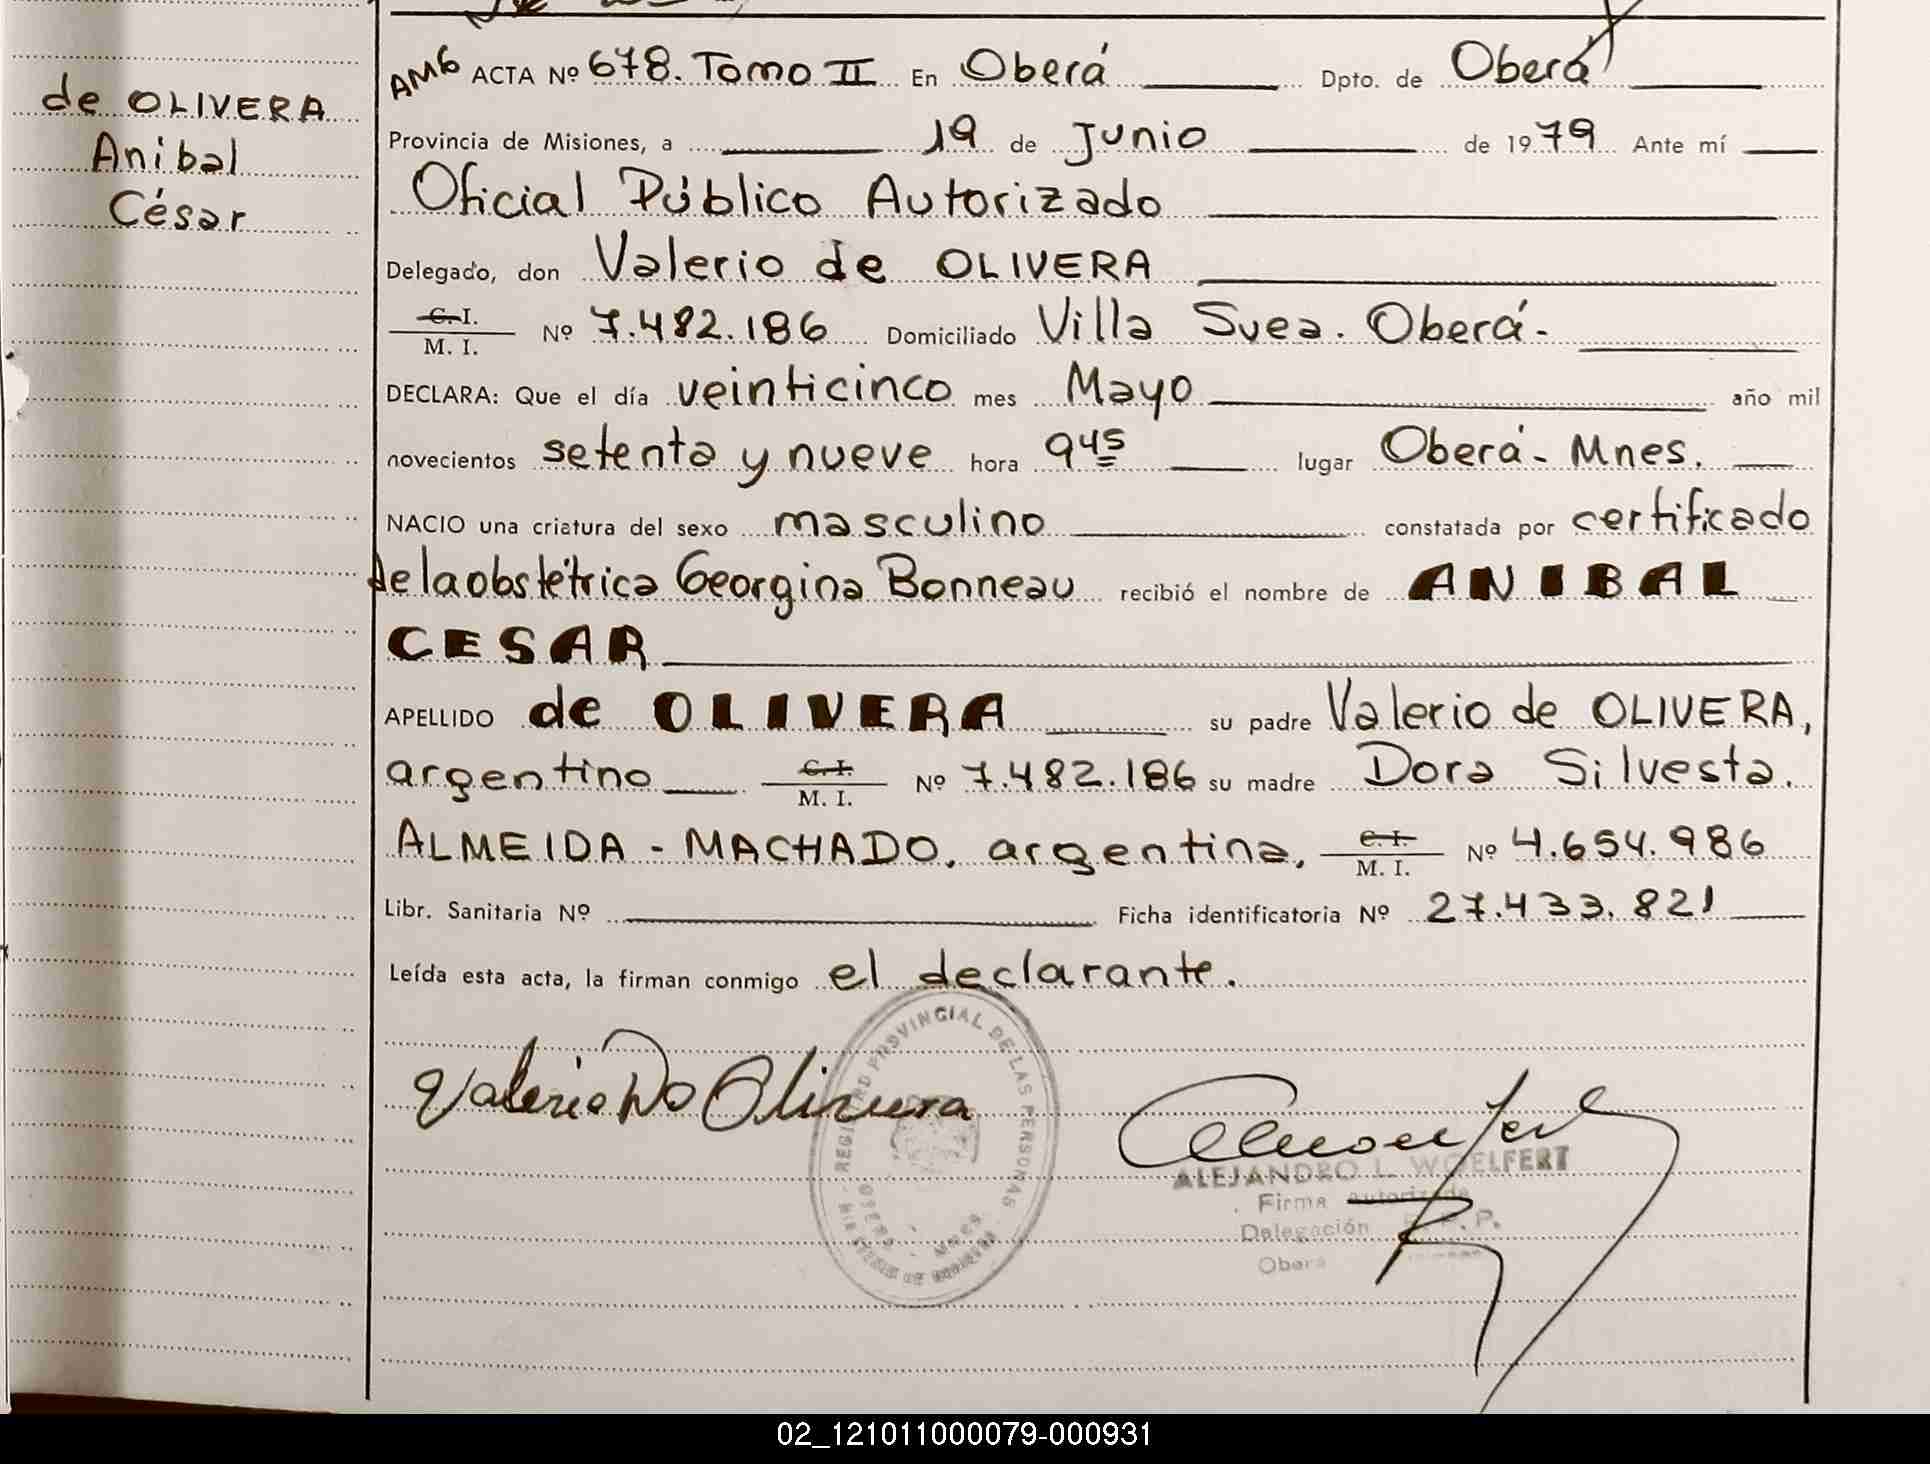 de OLIVERA
Anibal
César
AMG ACTA Nº 678. Tomo II En Oberá Dpto. de Oberá
Provincia de Misiones, a 19 de Junio de 1979 Ante mí
Oficial Público Autorizado
Delegado, don Valerio de OLIVERA
C. I.
M. I. Nº 7.482.186 Domiciliado Villa Svea. Oberá-
DECLARA: Que el día veinticinco mes Mayo año mil
novecientos setenta y nueve hora 9 45 lugar Oberá- Mnes.
NACIO una criatura del sexo masculino constatada por certificado
de la obstétrica Georgina Bonneau recibió el nombre de ANIBAL
CESAR
APELLIDO de OLIVERA su padre Valerio de OLIVERA,
argentino C. I. M. I. Nº 7.482.186 su madre Dora Silvesta.
ALMEIDA - MACHADO, argentina, C. I. M. I. Nº 4.654.986
Libr. Sanitaria Nº Ficha identificatoria Nº 27.433.821
Leída esta acta, la firman conmigo el declarante.
Valerio Do Olivera
REGISTRO PROVINCIAL DE LAS PERSONAS
OBERA - MNES.
MINISTERIO DE GOBIERNO
ALEJANDRO L. WOELFERT
Firma autorizada
Delegación R. P. P.
Oberá
02_121011000079-000931